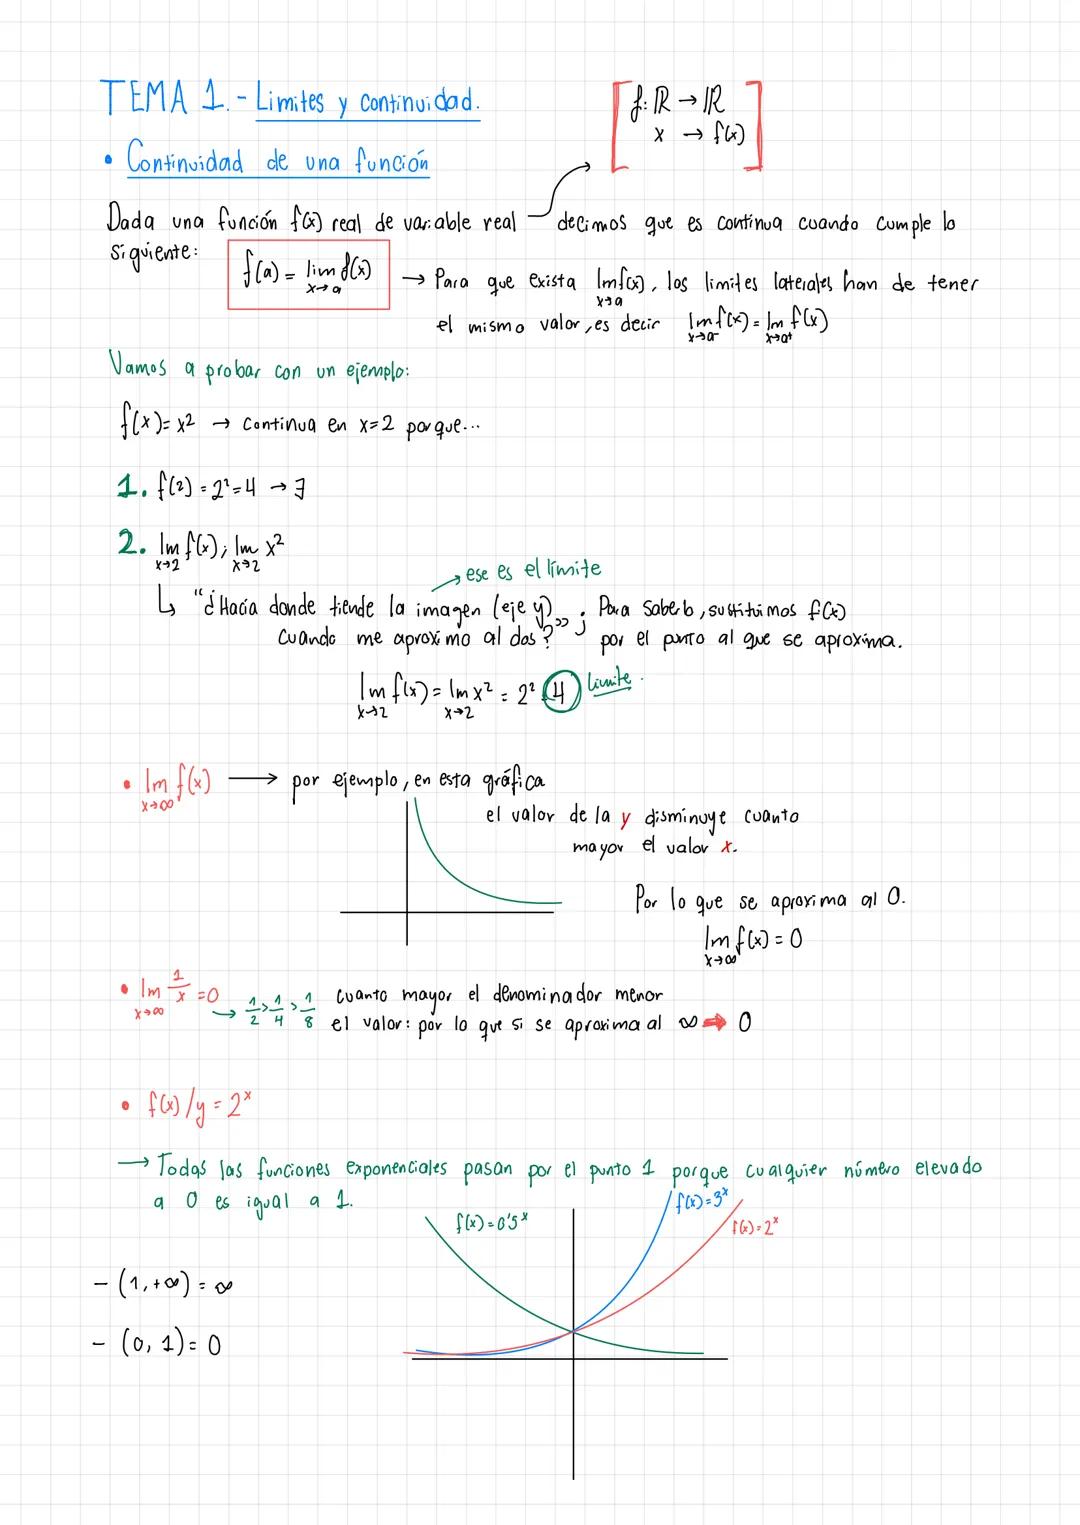 TEMA 1.- Limites y continuidad.
f: ℝ → ℝ
x → f(x)
• Continuidad de una función
Dada una función f(x) real de variable real decimos que es continua cuando cumple lo
siguiente:
f(a) = lim f(x)
x→a
→ Para que exista lim f(x), los limites laterales han de tener
x→a
el mismo valor, es decir lim f(x) = lim f(x)
x→a⁻ x→a⁺
Vamos a probar con un ejemplo:
f(x) = x² → Continua en x=2 porque...
1. f(2) = 2² = 4 → ∃
2. lim f(x); lim x²
x→2 x→2
ese es el límite
↳ "¿Hacia donde tiende la imagen (eje y) ; Para saberlo, sustituimos f(x)
cuando me aproximo al dos?" por el punto al que se aproxima.
lim f(x) = lim x² = 2² = 4 limite.
x→2 x→2
• lim f(x) → por ejemplo, en esta gráfica
x→∞
el valor de la y disminuye cuanto
mayor el valor x.
Por lo que se aproxima al 0.
lim f(x) = 0
x→∞
• lim 1/x = 0
x→∞
→ 1/2 > 1/4 > 1/8 cuanto mayor el denominador menor
el valor: por lo que si se aproxima al ∞ → 0
• f(x)/y = 2ˣ
→ Todas las funciones exponenciales pasan por el punto 1 porque cualquier número elevado
a 0 es igual a 1.
f(x) = 3ˣ
f(x) = 0'5ˣ
f(x) = 2ˣ
- (1, +∞) = ∞
- (0, 1) = 0